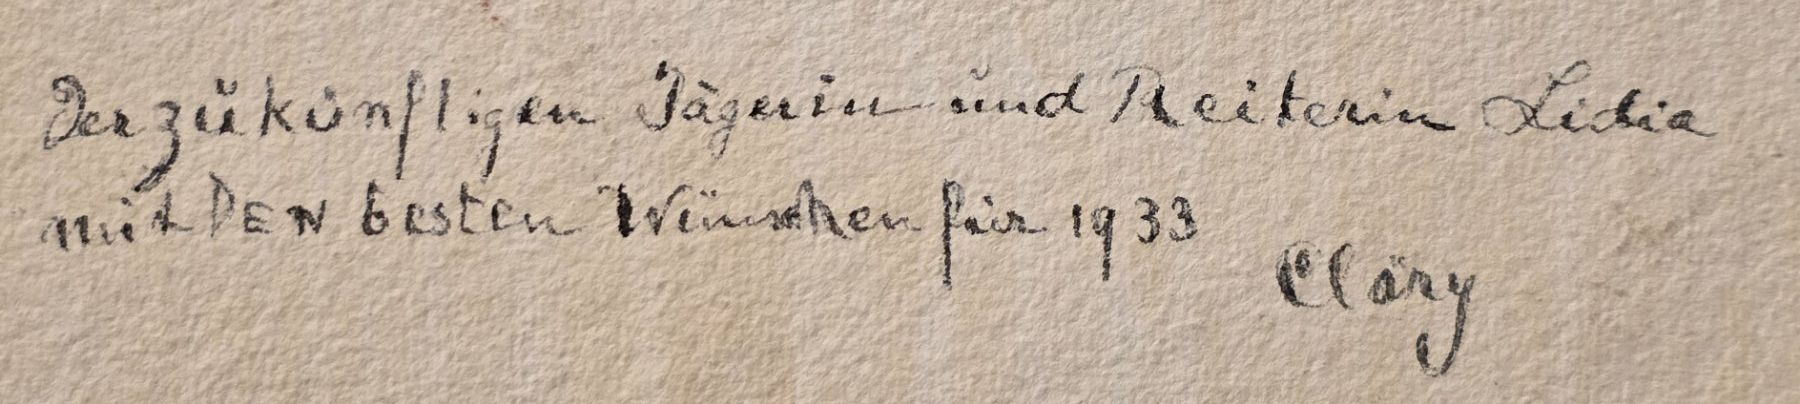 Der zukünftigen Jägerin und Reiterin Lidia
mit DEN besten Wünschen für 1933
Cläry